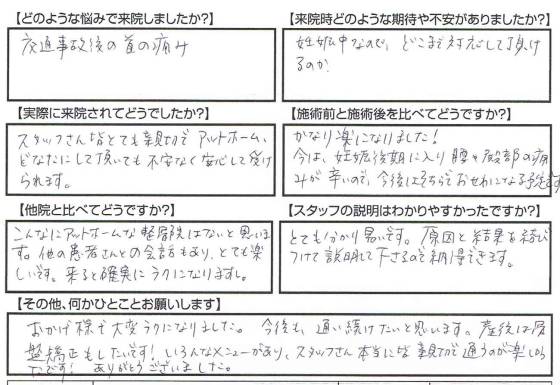 【どのような悩みで来院しましたか?】
交通事故後の首の痛み
【来院時どのような期待や不安がありましたか?】
妊娠中なので、どこまで対応して頂け
るのか?
【実際に来院されてどうでしたか?】
スタッフさん皆とても親切でアットホーム、
どなたにして頂いても不安なく安心して受け
られます。
【施術前と施術後を比べてどうですか?】
かなり楽になりました!
今は、妊娠後期に入り腰や殿部の痛
みが辛いので、今後はそちらでおせわになる予定です
【他院と比べてどうですか?】
こんなにアットホームな整骨院はないと思いま
す。他の患者さんとの会話もあり、とても楽
しいです。来ると確実にラクになりますし。
【スタッフの説明はわかりやすかったですか?】
とても分かり易いです。原因と結果を結び
つけて説明して下さるので納得できます。
【その他、何かひとことお願いします】
おかげ様で大変ラクになりました。今後も、通い続けたいと思います。産後は骨
盤矯正もしたいです!いろんなメニューがあり、スタッフさん本当に皆親切で通うのが楽しみ
です!ありがとうございました。